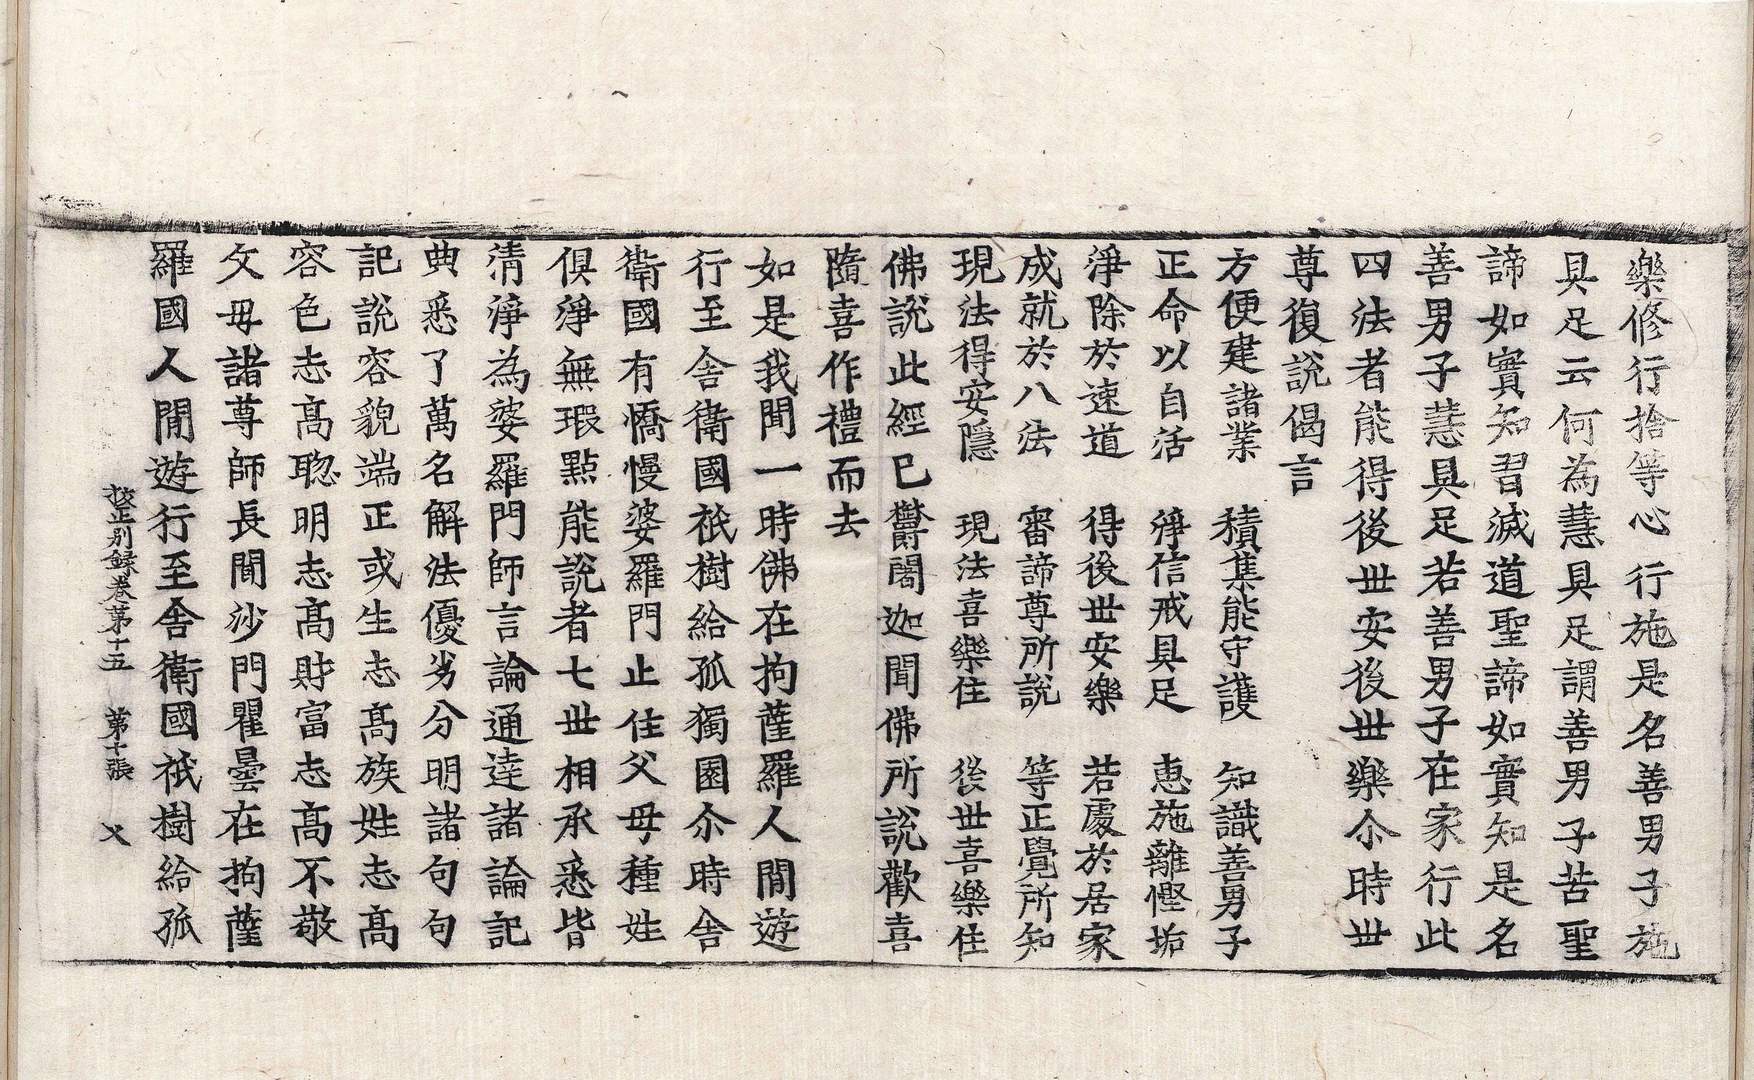 樂修行捨等心行施是名善男子施
具足云何為慧具足謂善男子苦聖
諦如實知習滅道聖諦如實知是名
善男子慧具足若善男子在家行此
四法者能得後世安後世樂尒時世
尊復說偈言
方便建諸業　積集能守護　知識善男子
正命以自活　淨信戒具足　惠施離慳垢
淨除於速道　得後世安樂　若處於居家
成就於八法　審諦尊所說　等正覺所知
現法得安隱　現法喜樂住　後世喜樂住
佛說此經已欝闍迦聞佛所說歡喜
隨喜作禮而去
如是我聞一時佛在拘薩羅人間遊
行至舍衛國祇樹給孤獨園尒時舍
衛國有憍慢婆羅門止住父母種姓
俱淨無瑕點能說者七世相承悉皆
清淨為婆羅門師言論通達諸論記
典悉了萬名解法優劣分明諸句句
記說容貌端正或生志高族姓志高
容色志高聦明志高財富志高不敬
父母諸尊師長聞沙門瞿曇在拘薩
羅國人間遊行至舍衛國祇樹給孤
挍正別録卷第十五　第十張　乂